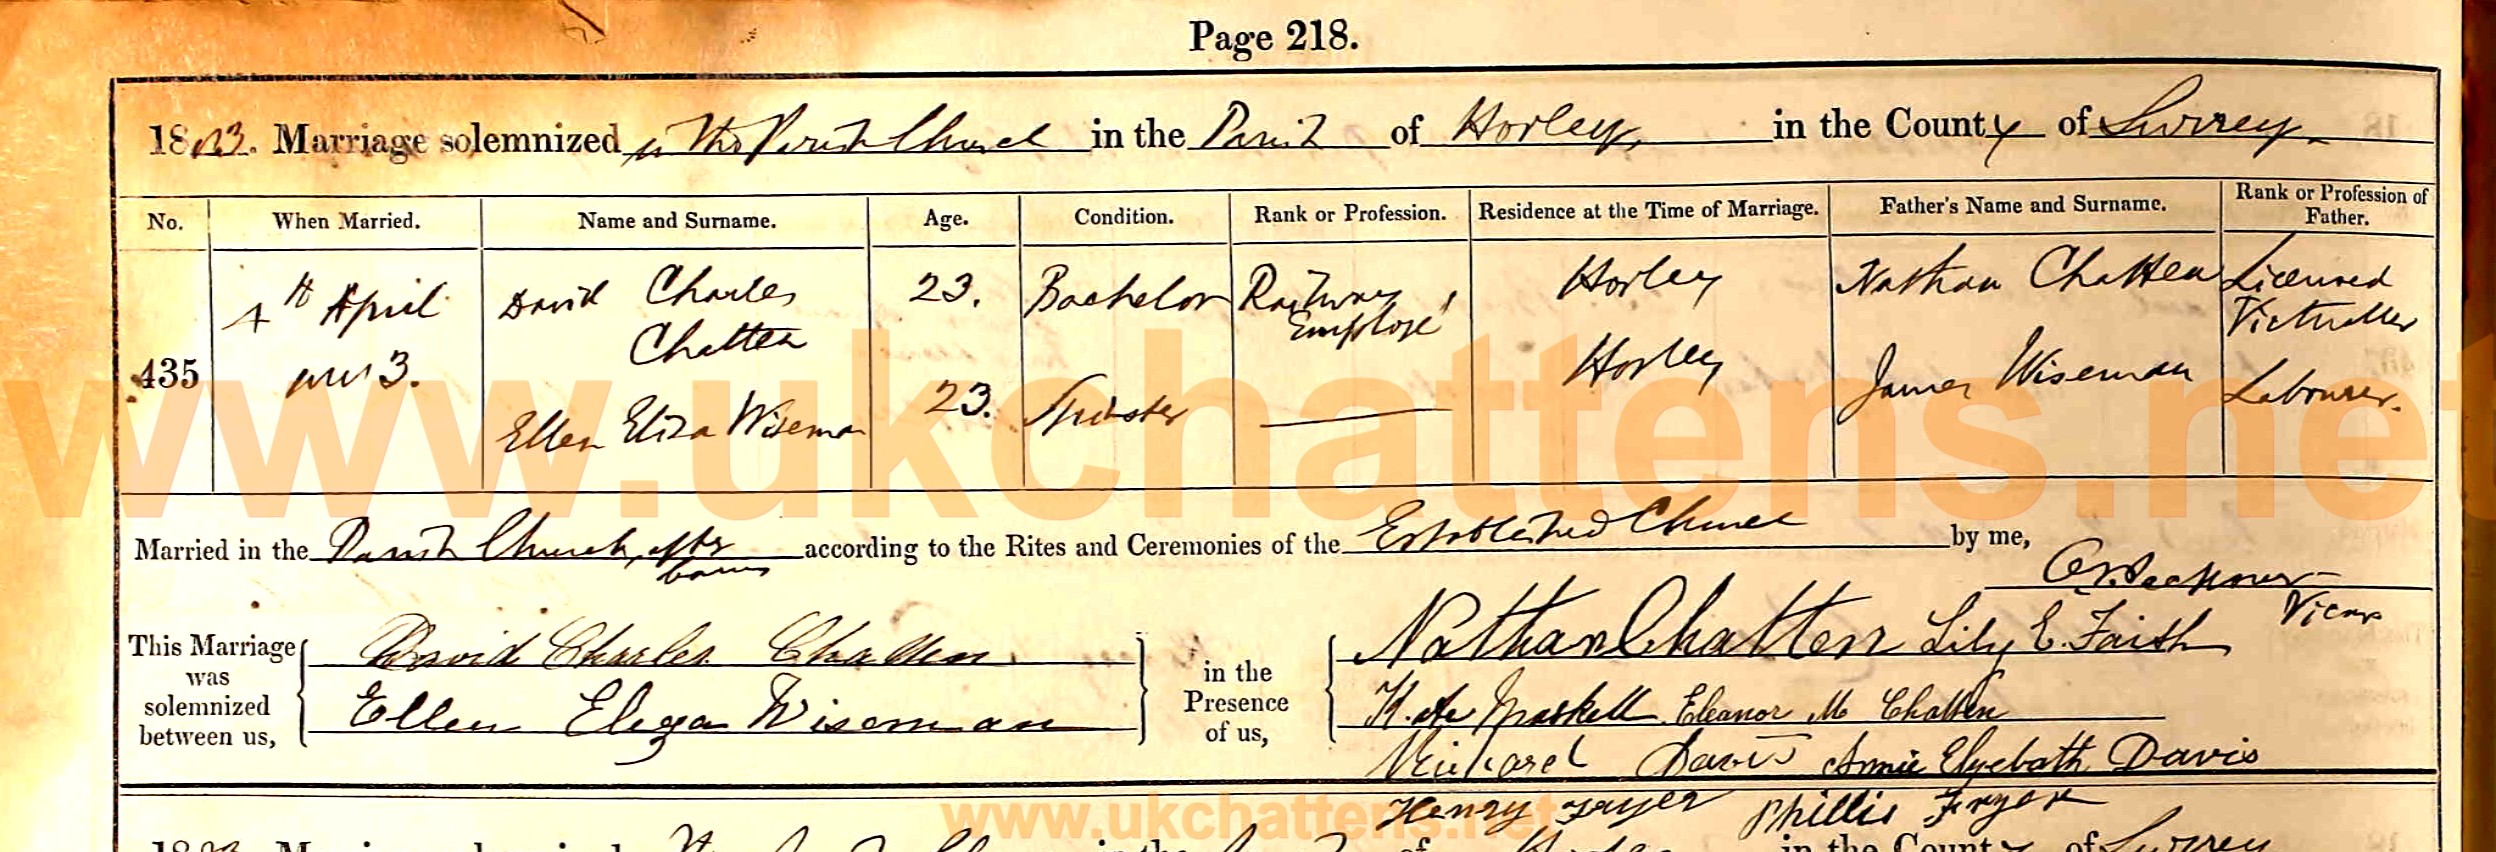 Page 218.
Marriage solemnized in the Parish Church in the Parish of Horley, in the County of Surrey
No. When Married. Name and Surname. Age. Condition. Rank or Profession. Residence at the Time of Marriage. Father's Name and Surname. Rank or Profession of Father.
435
4th April
David Charles Chatten 23. Bachelor Railway Employé Horley Nathan Chatten Licensed Victualler
Ellen Eliza Wiseman 23. Spinster Horley James Wiseman Labourer.
Married in the Parish Church, after banns according to the Rites and Ceremonies of the Established Church by me,
Vicar
This Marriage was solemnized between us,
David Charles Chatten
Ellen Eliza Wiseman
in the Presence of us,
Nathan Chatten Lily E. Faith
Kate Maskell Eleanor M Chatten
Michael Davis Annie Elyebath Davis
Henry Fryer Phillis Fryer
in the County of Surrey
www.ukchattens.net
www.ukchattens.net